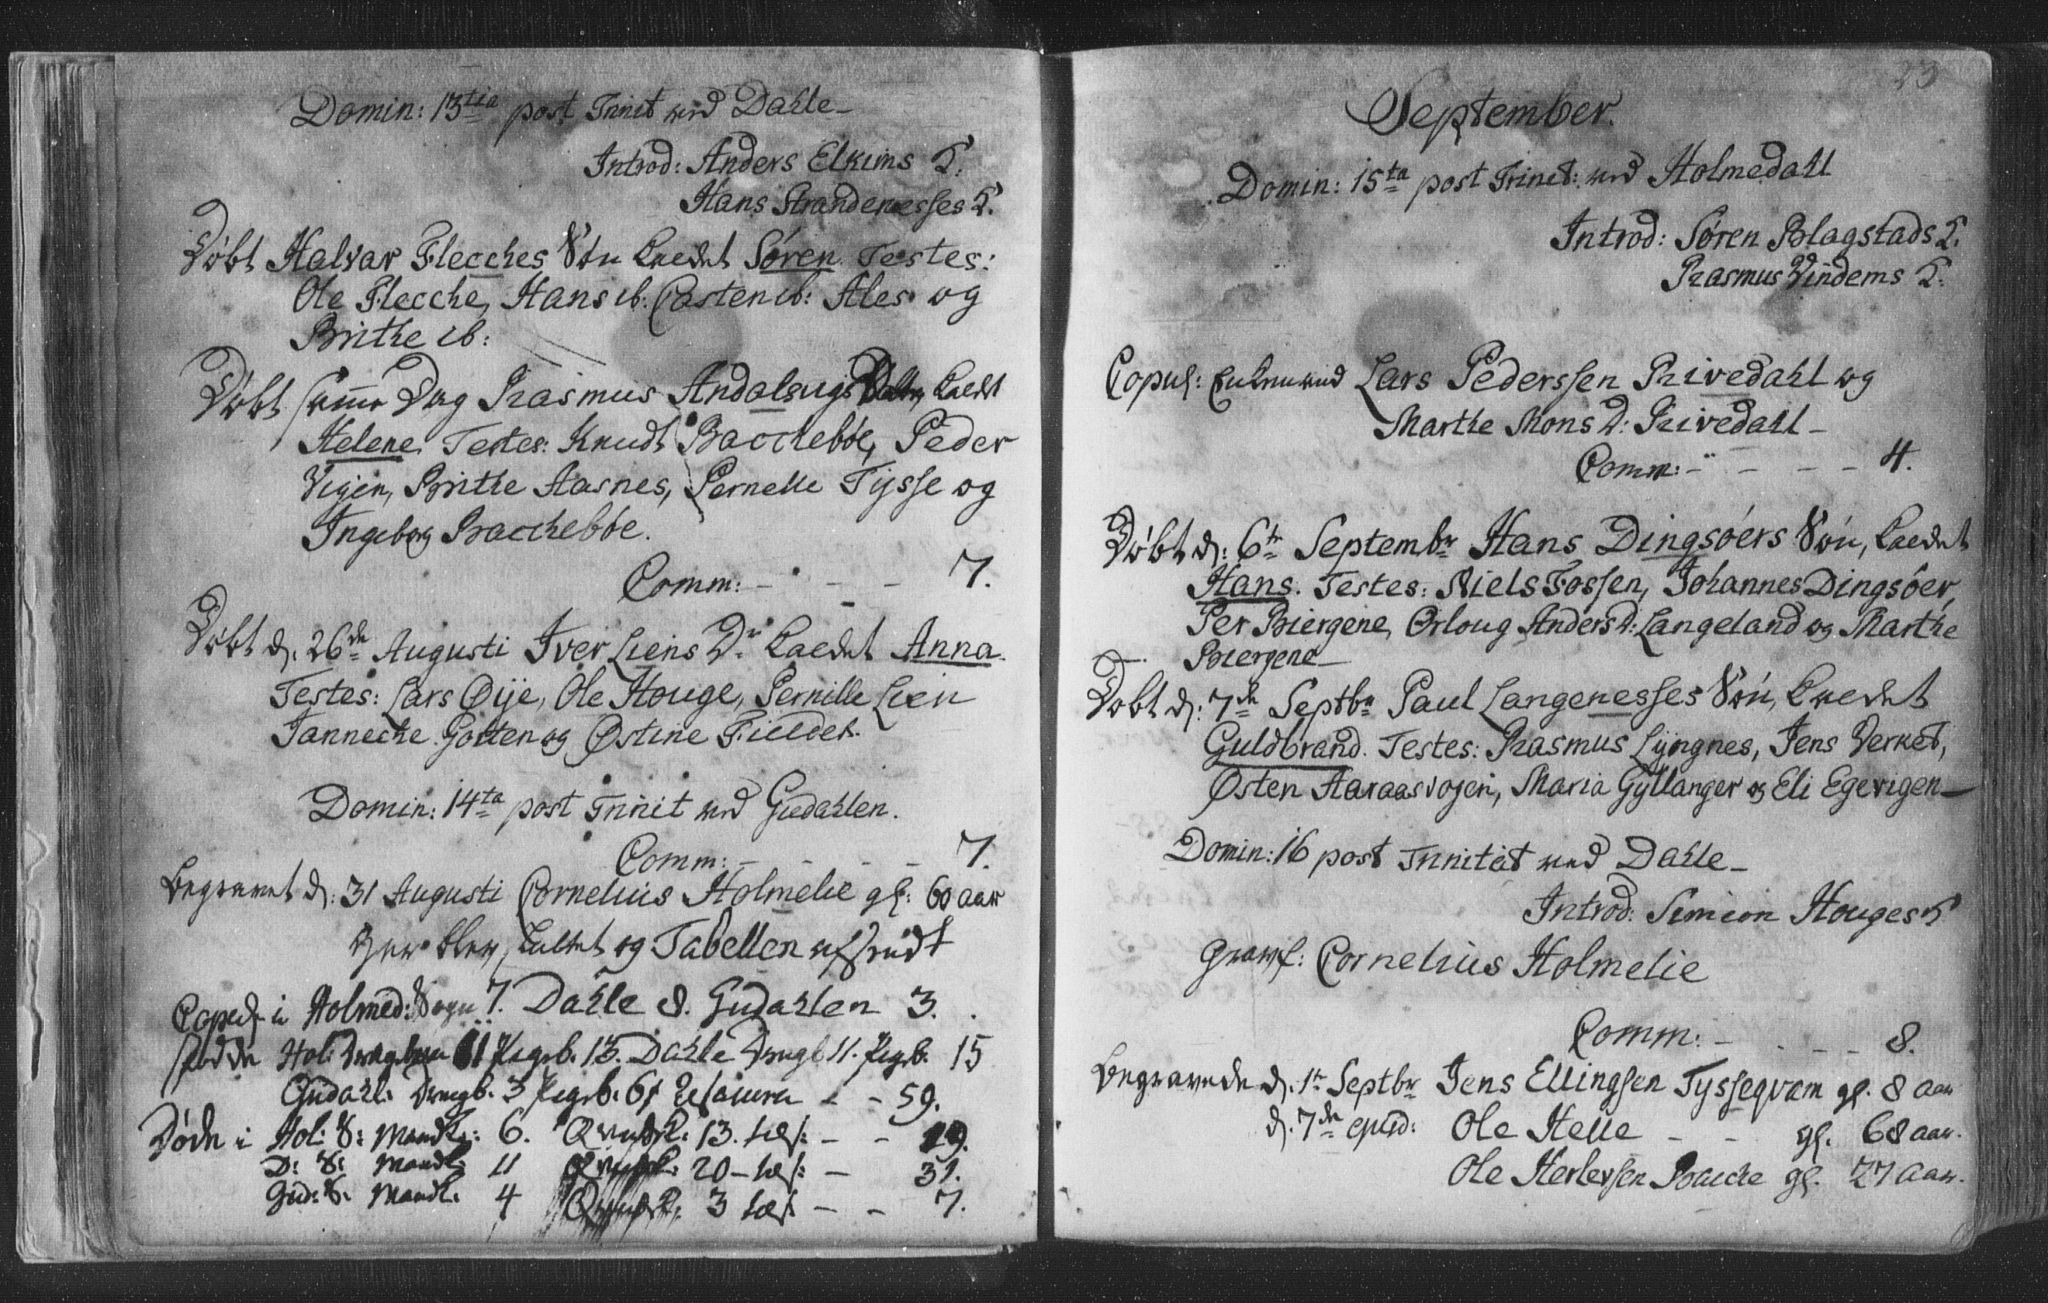 Domin: 13tia post Trinit ved Dahle
Introd: Anders Elkims K:
Hans Strandenesses K:
Døbt Halvar Flecches Søn kaldet Søren. Testes:
Ole Flecche, Hans ib: Casten ib: Ales og
Brithe ib:
Døbt samme Dag Rasmus Andalsvigs Datter kaldt
Helene. Testes: Knudt Bacchebøe, Peder
Vigen, Brithe Aasnes, Pernelle Tysse og
Ingeborg Bacchebøe.
Comm: - - - - 7.
Døbt d. 26de Augusti Iver Liens Dr kaldet Anna.
Testes: Lars Øije, Ole Houge, Pernille Lien
Jannecke Gotten og Østine Fieldet.
Domin: 14ta post Trinit ved Gudahlen.
Comm: - - - - 7.
Begravet d: 31 Augusti Cornelius Holmelie gl: 60 aar
Her blev sluttet og Tabellen afsendt
Copul i Holmed: Sogn 7. Dahle 8. Gudahlen 3.
fødde Hol: Drengbørn 11 Pigeb. 13. Dahle Drengb 11. Pigb. 15
Gudahl: Drengb. 3 Pigeb. 6 - - 59.
Døde i Hol: S: Mandk: 6. Qvindk: 13. - - 19.
D: S: Mandk: 11 Qvindk: 20 - - 31.
Gud: S: Mandk: 4 Qvindk: 3 - - 7.
23
September.
Domin: 15ta post Trinit: ved Holmedahl
Introd: Søren Blagstads K.
Rasmus Vindems K:
Copul: Enkemand Lars Pederssen Rivedahl og
Marthe Mons D: Rivedahl
Comm: - - - - 4.
Døbt d: 6te Septembr Hans Dingsøers Søn, kaldet
Hans. Testes: Niels Fossen, Johannes Dingsøer,
Per Biergene, Ørloug Anders D: Langeland og Marthe
Biergene
Døbt d: 7de Septbr Paul Langenesses Søn, kaldet
Guldbrand. Testes: Rasmus Lyngnes, Jens Verket,
Østen Aaraasvogen, Maria Gyttanger og Eli Egevigen
Domin: 16 post Trinitat ved Dahle
Introd: Simion Houges K
Gravf: Cornelius Holmelie
Comm: - - - - 8.
Begravede d. 1te Septbr Jens Ellingsen Tysseqvam gl. 8 aar
d. 7de ejusd: Ole Helle - - gl. 68 aar.
Ole Herlevsen Baacke gl. 27 aar.